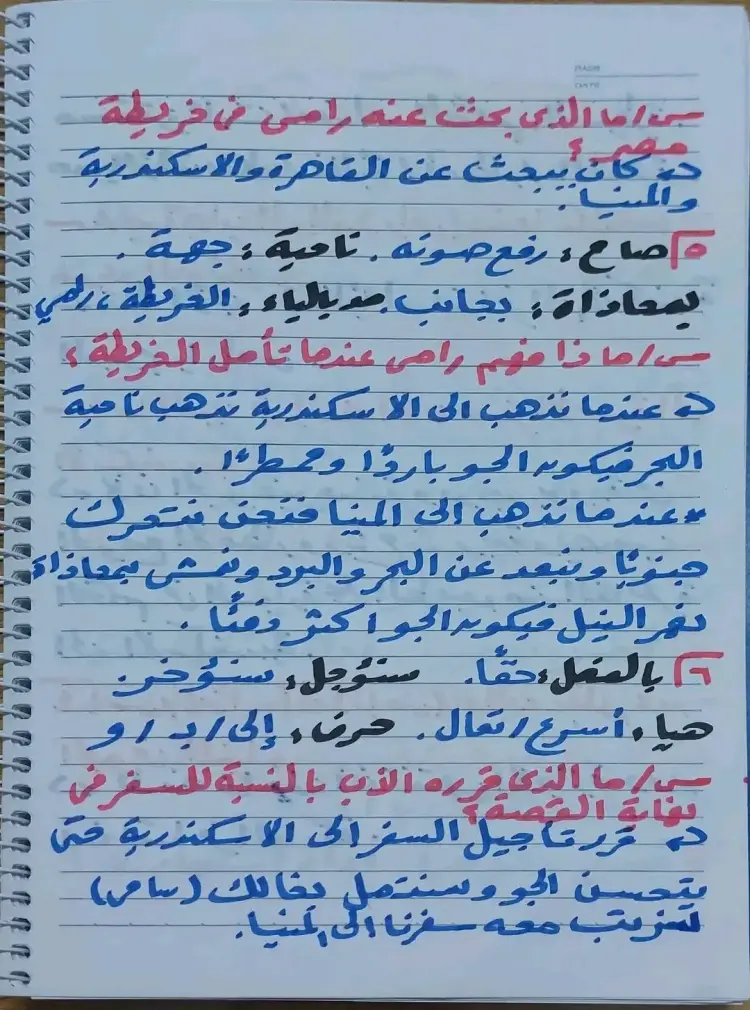 س/ ما الذى بحث عنه رامى فى خريطة
مصر؟
ج/ كان يبحث عن القاهرة والاسكندرية
والمنيا.
٥ صاح: رفع صوته. ناحية: جهة.
بمحاذاة: بجانب. مدبالياء: الخريطة، رامي
س/ ماذا فهم رامى عندما تأمل الخريطة؟
ج/ عندما نذهب الى الاسكندرية نذهب ناحية
البحر فيكون الجو باردًا وممطرًا.
* عندما نذهب الى المنيا فنحن نتحرك
جنوبًا ونبعد عن البحر والبرد ونمشى بمحاذاة
نهر النيل فيكون الجو اكثر دفئًا.
٦ بالفعل: حقًا. سنؤجل: سنؤخر.
هيا: أسرع/تعال. حرف: إلى/بـ/و
س/ ما الذى قرره الأب بالنسبة للسفر فى
نهاية القصة؟
ج/ قرر تأجيل السفر الى الاسكندرية حتى
يتحسن الجو وسنتصل بخالك (سامى)
لنرتب معه سفرنا الى المنيا.